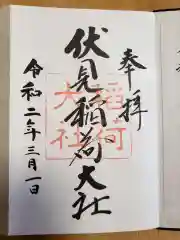 奉拝
伏見稲荷大社
令和二年三月一日
稲荷
大社